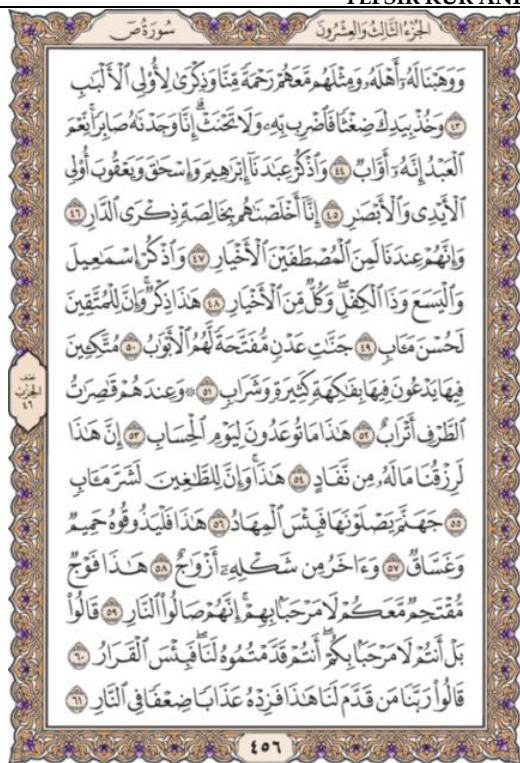 TEFSİR KUR'ANI
سُورَةُ صٓ الجُزْءُ الثَّالِثُ وَالعِشْرُونَ
وَوَهَبْنَا لَهُۥٓ أَهْلَهُۥ وَمِثْلَهُم مَّعَهُمْ رَحْمَةً مِّنَّا وَذِكْرَىٰ لِأُو۟لِى ٱلْأَلْبَٰبِ
٤٣ وَخُذْ بِيَدِكَ ضِغْثًا فَٱضْرِب بِّهِۦ وَلَا تَحْنَثْ ۗ إِنَّا وَجَدْنَٰهُ صَابِرًا ۚ نِّعْمَ
ٱلْعَبْدُ ۖ إِنَّهُۥٓ أَوَّابٌ ٤٤ وَٱذْكُرْ عِبَٰدَنَآ إِبْرَٰهِيمَ وَإِسْحَٰقَ وَيَعْقُوبَ أُو۟لِى
ٱلْأَيْدِى وَٱلْأَبْصَٰرِ ٤٥ إِنَّآ أَخْلَصْنَٰهُم بِخَالِصَةٍ ذِكْرَى ٱلدَّارِ ٤٦
وَإِنَّهُمْ عِندَنَا لَمِنَ ٱلْمُصْطَفَيْنَ ٱلْأَخْيَارِ ٤٧ وَٱذْكُرْ إِسْمَٰعِيلَ
وَٱلْيَسَعَ وَذَا ٱلْكِفْلِ ۖ وَكُلٌّ مِّنَ ٱلْأَخْيَارِ ٤٨ هَٰذَا ذِكْرٌ ۚ وَإِنَّ لِلْمُتَّقِينَ
لَحُسْنَ مَـَٔابٍ ٤٩ جَنَّٰتِ عَدْنٍ مُّفَتَّحَةً لَّهُمُ ٱلْأَبْوَٰبُ ٥٠ مُتَّكِـِٔينَ
فِيهَا يَدْعُونَ فِيهَا بِفَٰكِهَةٍ كَثِيرَةٍ وَشَرَابٍ ٥١ ۞ وَعِندَهُمْ قَٰصِرَٰتُ
ٱلطَّرْفِ أَتْرَابٌ ٥٢ هَٰذَا مَا تُوعَدُونَ لِيَوْمِ ٱلْحِسَابِ ٥٣ إِنَّ هَٰذَا
لَرِزْقُنَا مَا لَهُۥ مِن نَّفَادٍ ٥٤ هَٰذَا ۚ وَإِنَّ لِلطَّٰغِينَ لَشَرَّ مَـَٔابٍ
٥٥ جَهَنَّمَ يَصْلَوْنَهَا فَبِئْسَ ٱلْمِهَادُ ٥٦ هَٰذَا فَلْيَذُوقُوهُ حَمِيمٌ
وَغَسَّاقٌ ٥٧ وَءَاخَرُ مِن شَكْلِهِۦٓ أَزْوَٰجٌ ٥٨ هَٰذَا فَوْجٌ
مُّقْتَحِمٌ مَّعَكُمْ ۖ لَا مَرْحَبًۢا بِهِمْ ۚ إِنَّهُمْ صَالُوا۟ ٱلنَّارِ ٥٩ قَالُوا۟
بَلْ أَنتُمْ لَا مَرْحَبًۢا بِكُمْ ۖ أَنتُمْ قَدَّمْتُمُوهُ لَنَا ۖ فَبِئْسَ ٱلْقَرَارُ ٦٠
قَالُوا۟ رَبَّنَا مَن قَدَّمَ لَنَا هَٰذَا فَزِدْهُ عَذَابًا ضِعْفًا فِى ٱلنَّارِ ٦١
نصف
الحزب
٤٦
٤٥٦